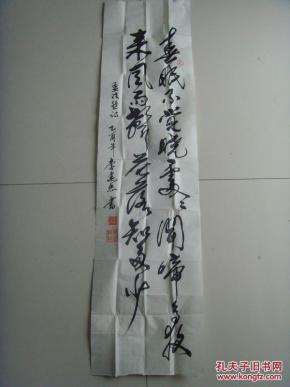 春眠不觉晓处处闻啼鸟夜
来风雨声花落知多少
孟浩然诗 乙酉年 李建忠书
孔夫子旧书网